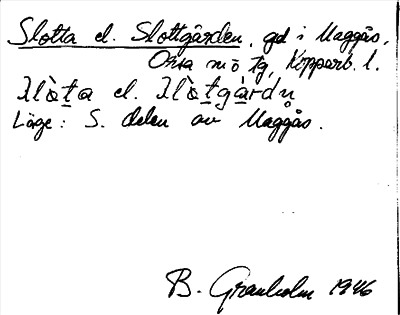 Slotta el. Slottgården, gd i Maggås,
Orsa sn ö tg, Kopparb. l.
el.
Läge: S. delen av Maggås.
B. Granholm 1946